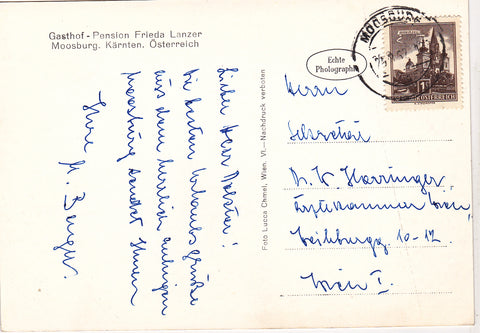 Gasthof - Pension Frieda Lanzer
Moosburg. Kärnten. Österreich
Lieber Herr Doktor!
Die besten Urlaubsgrüße
aus dem herrlich ruhigen
Moosburg sendet Ihnen
Ihre M. Berger
Foto Lucca Chmel, Wien, VI.—Nachdruck verboten
Echte
Photographie
MOOSBURG
1
ÖSTERREICH
Herrn
Sekretär
Dr. W. Harringer
Ärztekammer Wien
Weihburgg. 10-12
Wien I.